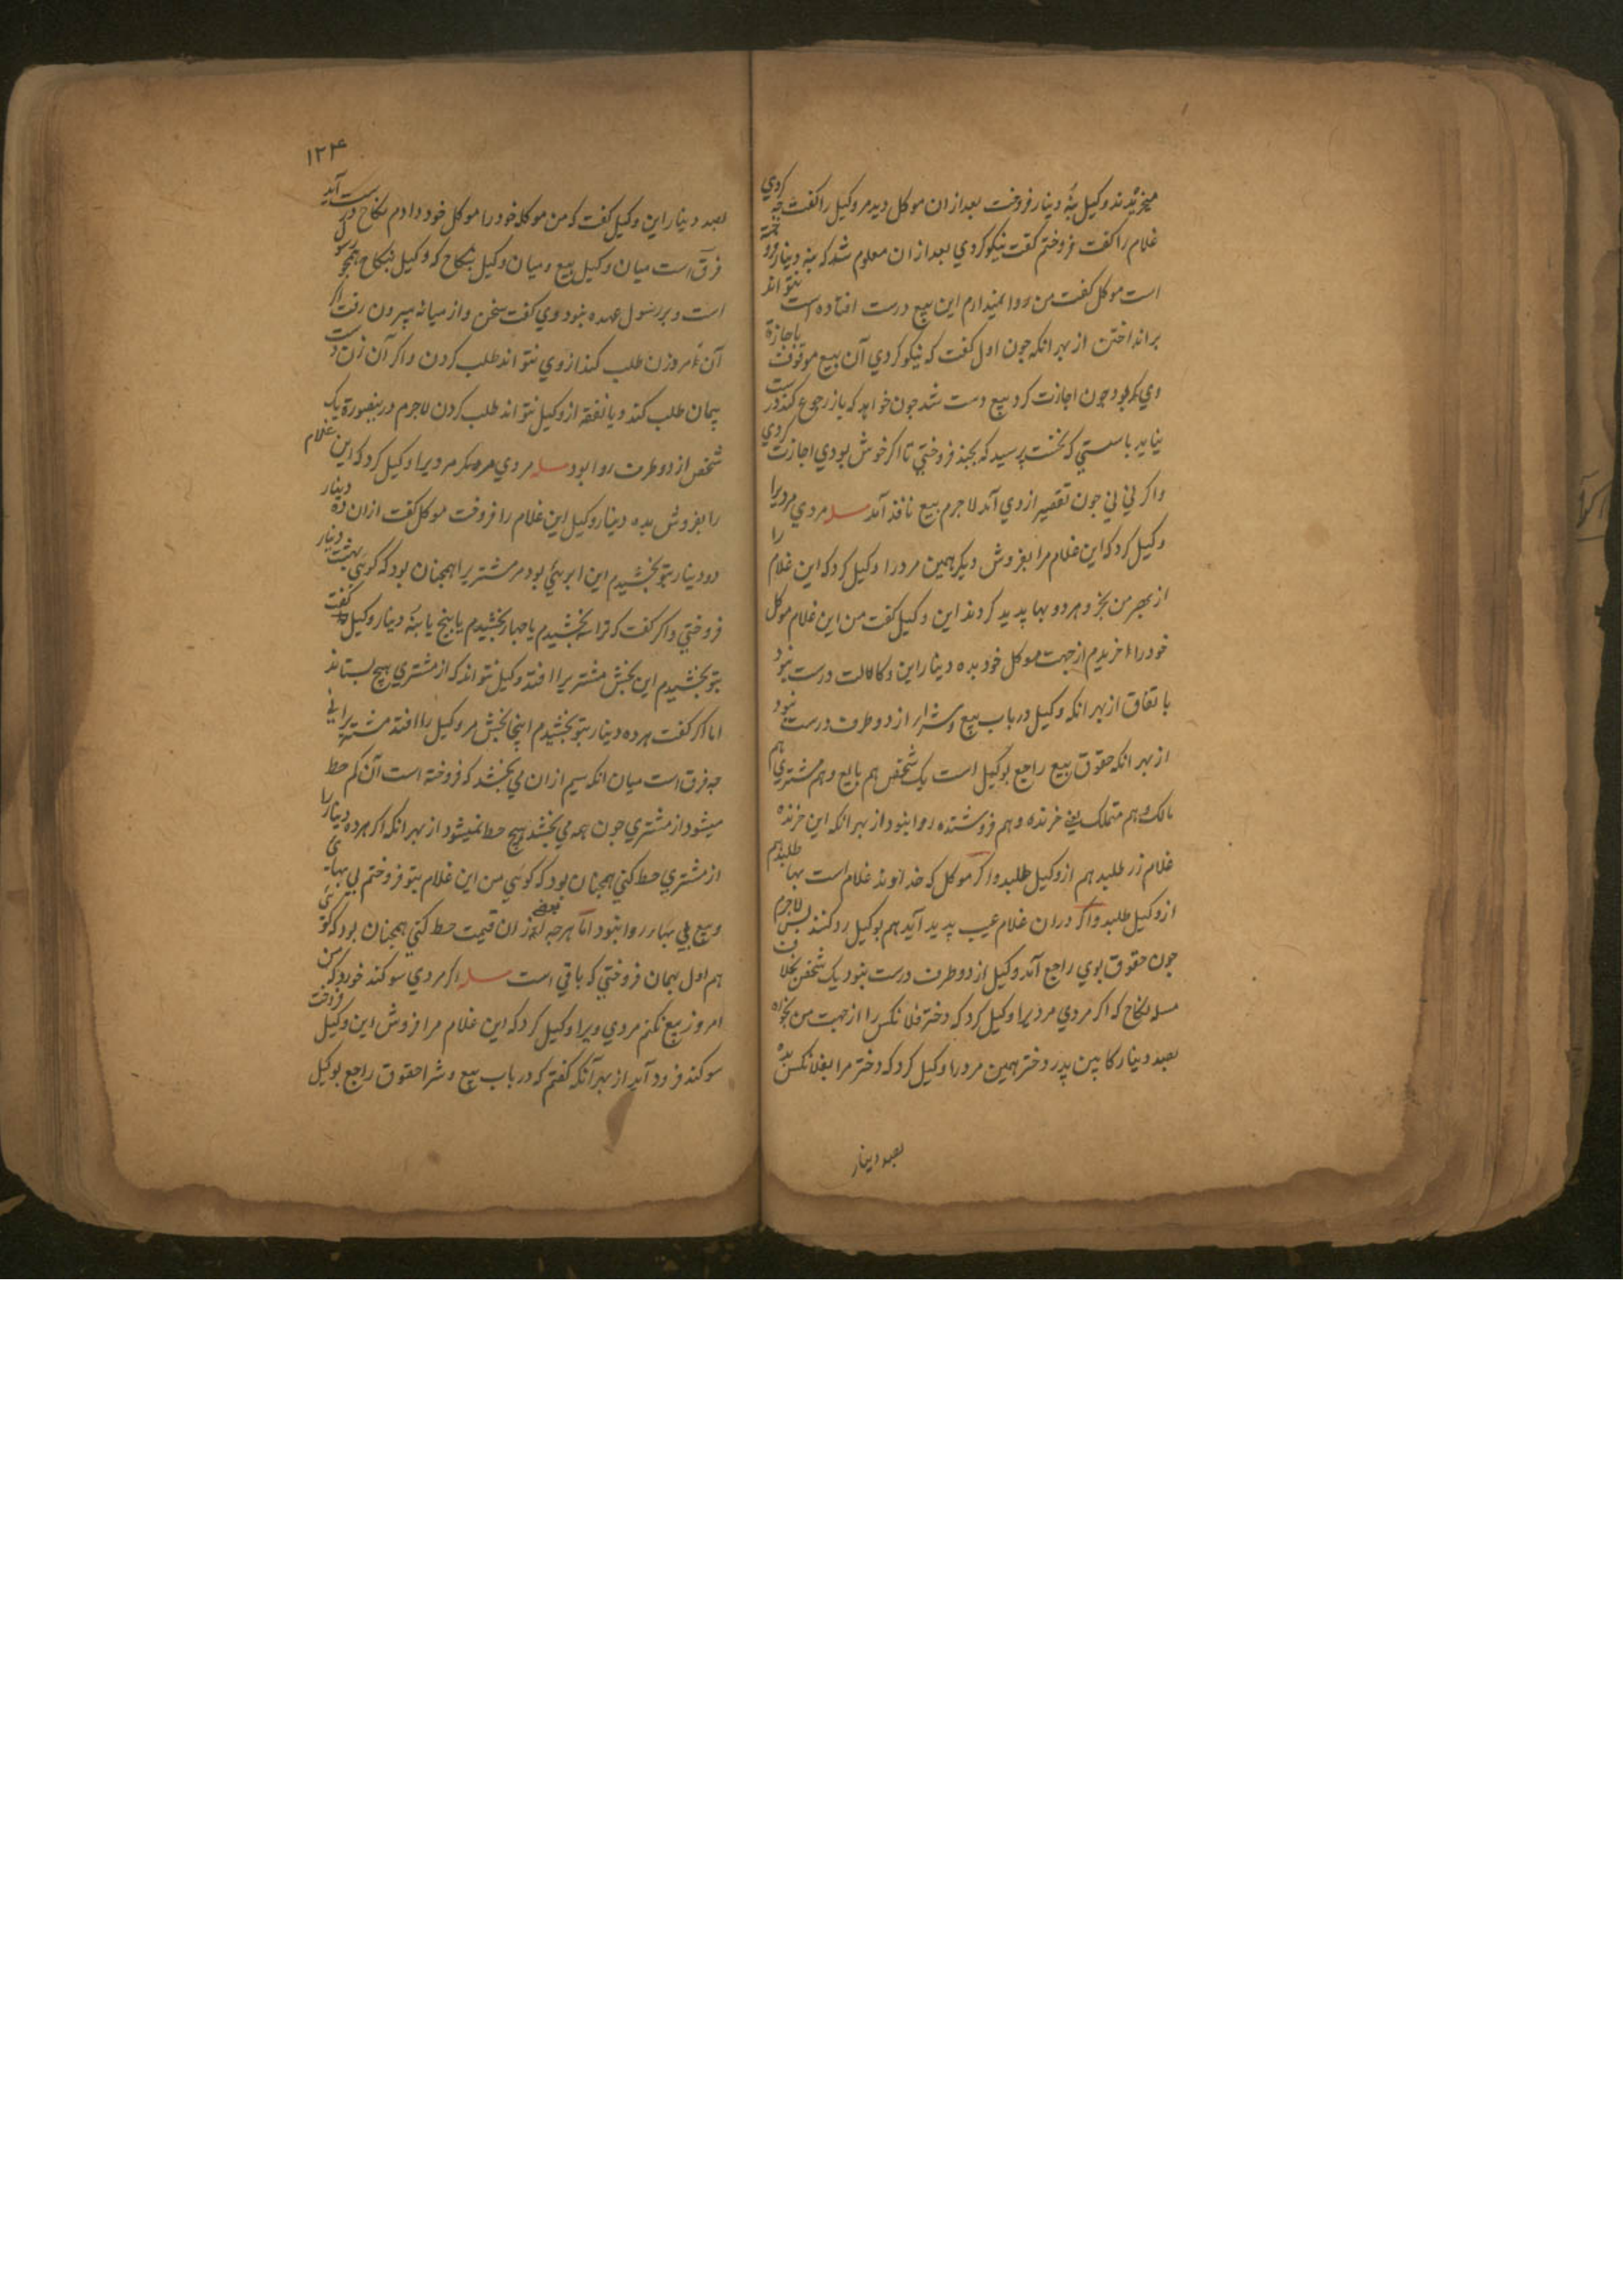 میخریدند وکیل بنه دینار فروخت بعد از ان موکل دید مر وکیل را کفت جه کردي
غلام را کفت فروختم کفت نیکو کردي بعد از ان معلوم شد که بنه دینار فروخته
است موکل کفت من روا نمیدارم این بیع درست افتاده است نتواند
بر انداختن از بهر انکه جون اول کفت که نیکو کردي آن بیع موقوف باجازة
وي بود جون اجازت کرد بیع درست شد جون خواهد که باز رجوع کند درست
نیاید بایستي که نخست پرسید که بجند فروختي تا اکر خوش بودي اجازت کردي
واکر ني ني جون تقصیر از وي آمد لاجرم بیع نافذ آمد مسله مردي مردیرا
وکیل کرد که این غلام مرا بفروش دیکر همین مرد را وکیل کرد که این غلام را
از بهر من بخر و هر دو بها پدید کردند این وکیل کفت من این غلام موکل
خود را خریدم از جهت موکل خود بده دینار این وکالت درست نبود
باتفاق از بهر انکه وکیل در باب بیع و شرا از دو طرف درست نبود
از بهر انکه حقوق بیع راجع بوکیل است یک شخص هم بایع و هم مشتري هم
مالک و هم متملک یعني خرنده و هم فروشنده روا نبود از بهر انکه این خرنده
غلام زر طلبد هم از وکیل طلبد واکر موکل که خداوند غلام است بها طلبد هم
از وکیل طلبد واکر دران غلام عیب پدید آید هم بوکیل رد کنند پس لاجرم
جون حقوق بوي راجع آمد وکیل از دو طرف درست نبود یک شخص بخلاف
مسله نکاح که اکر مردي مردیرا وکیل کرد که دختر فلانکس را از جهت من بخواه
بصد دینار کابین پدر دختر همین مرد را وکیل کرد که دختر مرا بفلانکس بده
بصد دینار
۱۲۴
بصد دینار این وکیل کفت که من موکله خود را موکل خود دادم نکاح درست آید
فرق است میان وکیل بیع و میان وکیل نکاح که وکیل نکاح همجو رسول
است و بر رسول عهده نبود وي کفت سخن و از میانه بیرون رفت اکر
آن مرد زن طلب کند از وي نتواند طلب کردن واکر آن زن دست
پیمان طلب کند و یا نفقه از وکیل نتواند طلب کردن لاجرم درینصورة یک
شخص از دو طرف روا بود مسله مردي مر دیکر مرد یرا وکیل کرد که این غلام
را بفروش بده دینار وکیل این غلام را فروخت موکل کفت ازان ده دینار
دو دینار بتو بخشیدم این ابرئي بود مر مشتریرا همجنان بود که کوئي بهشت دینار
فروختي واکر کفت که ترا بخشیدم یا جهار بخشیدم یا پنج یا بنه دینار وکیل کفت
بتو بخشیدم این بخشش مشتریرا افتد وکیل نتواند که از مشتري هیج بستاند
اما اکر کفت هر ده دینار بتو بخشیدم اینجا بخشش مر وکیل را افتد مشتریرا ني
جه فرق است میان انکه سیم ازان مي بخشد که فروخته است آن کم حط
میشود از مشتري جون همه مي بخشد هیج حط نمیشود از بهر انکه اکر هر ده دینار را
از مشتري حط کني همجنان بود که کوئي من این غلام بتو فروختم بي بهائي
وبیع بي بها روا نبود اما هر جه بعضي ازان قیمت حط کني همجنان بود که کوئي
هم اول بهمان فروختي که باقي است مسله اکر مردي سوکند خورد که من
امروز بیع نکنم مردي ویرا وکیل کرد که این غلام مرا فروش این وکیل فروخت
سوکند فرود آید از بهر آنکه کفتم که در باب بیع و شرا حقوق راجع بوکیل